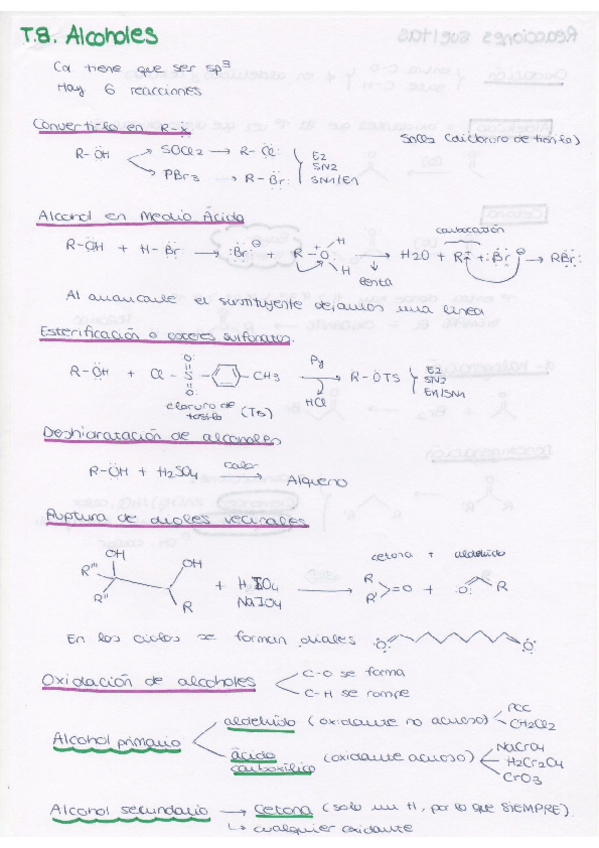 T.8. Alcoholes
Cα tiene que ser sp3
Hay 6 reacciones
Convertirlo en R-X
SOCl2 (dicloruro de tionilo)
R-OH → SOCl2 → R-Cl: E2 SN2 SN1/E1
→ PBr3 → R-Br:
Alcohol en Medio Ácido
carbocatión
R-OH + H-Br → :Br:⊖ + R-O+ H H → H2O + R+ + :Br:⊖ → RBr:
lenta
Al arrancarle el sustituyente dejamos una línea
Esterificación o ésteres sulfonatos.
R-OH + Cl-S-CH3 Py → R-OTS E2 SN2 E1/SN1
:O: :O: HCl
cloruro de tosilo (Ts)
Deshidratación de alcoholes
R-OH + H2SO4 calor → Alqueno
Ruptura de dioles vecinales
cetona + aldehido
OH OH R''' R'' R + HIO4 NaIO4 → R R' =O + :O: R
En los ciclos se forman diales :O: O:
Oxidación de alcoholes C-O se forma
C-H se rompe
Alcohol primario
aldehido (oxidante no acuoso) PCC CH2Cl2
ácido carboxílico (oxidante acuoso) NaCrO4 H2Cr2O4 CrO3
Alcohol secundario → Cetona (solo un H, por lo que SIEMPRE)
↳ cualquier oxidante